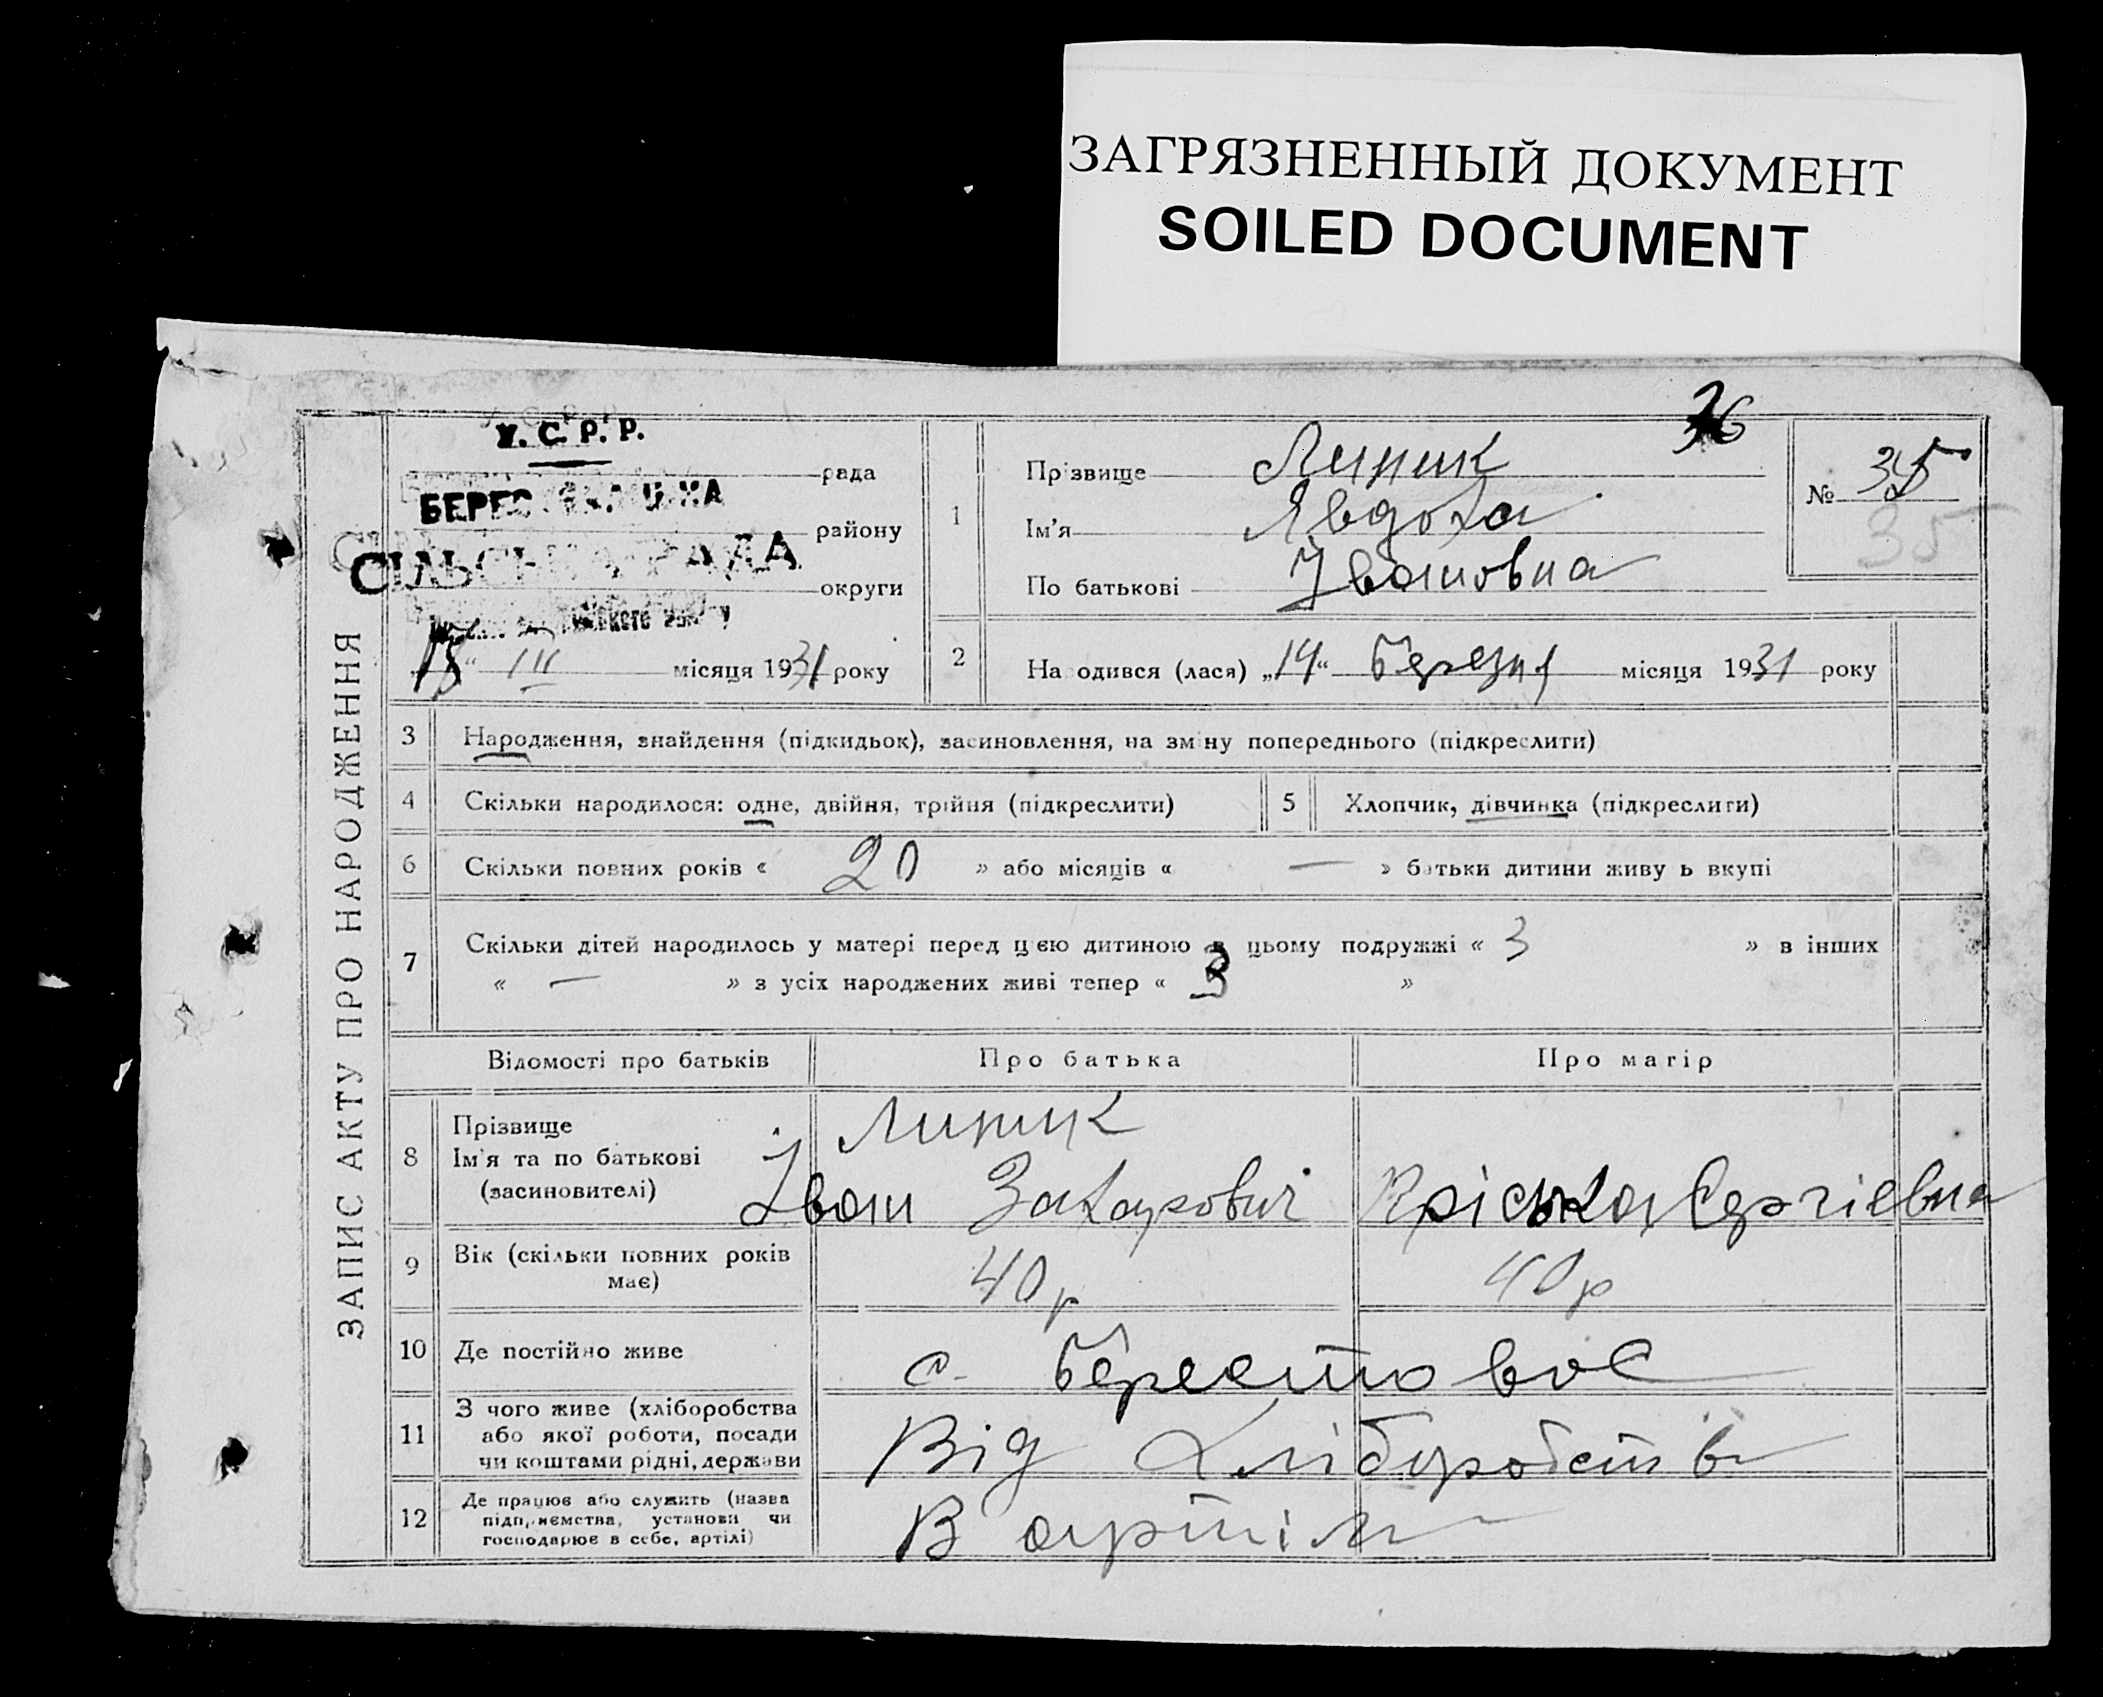 ЗАГРЯЗНЕННЫЙ ДОКУМЕНТ
SOILED DOCUMENT
36
ЗАПИС АКТУ ПРО НАРОДЖЕННЯ
У. С. Р. Р.
рада
району
СІЛЬСЬКА РАДА
округи
III місяця 1931 року
1
Прізвище Липик
Ім'я Явдоха
По батькові Івановна
№ 35
35
2
Народився (лася) „14“ Березня місяця 1931 року
3 Народження, знайдення (підкидьок), засиновлення, на зміну попереднього (підкреслити)
4 Скільки народилося: одне, двійня, трійня (підкреслити)
5 Хлопчик, дівчинка (підкреслити)
6 Скільки повних років « 20 » або місяців « — » батьки дитини живуть вкупі
7 Скільки дітей народилось у матері перед цією дитиною в цьому подружжі « 3 » в інших
« — » з усіх народжених живі тепер « 3 »
Відомості про батьків Про батька Про матір
8 Прізвище
Ім'я та по батькові
(засиновителі)
Липик
Іван Захарович Пріська Сергіевна
9 Вік (скільки повних років
має)
40 р 40 р
10 Де постійно живе с. Берестовое
11 З чого живе (хліборобства
або якої роботи, посади
чи коштами рідні, держави
Від хліборобств
12 Де працює або служить (назва
підприємства, установи чи
господарює в себе, артілі)
В артілі